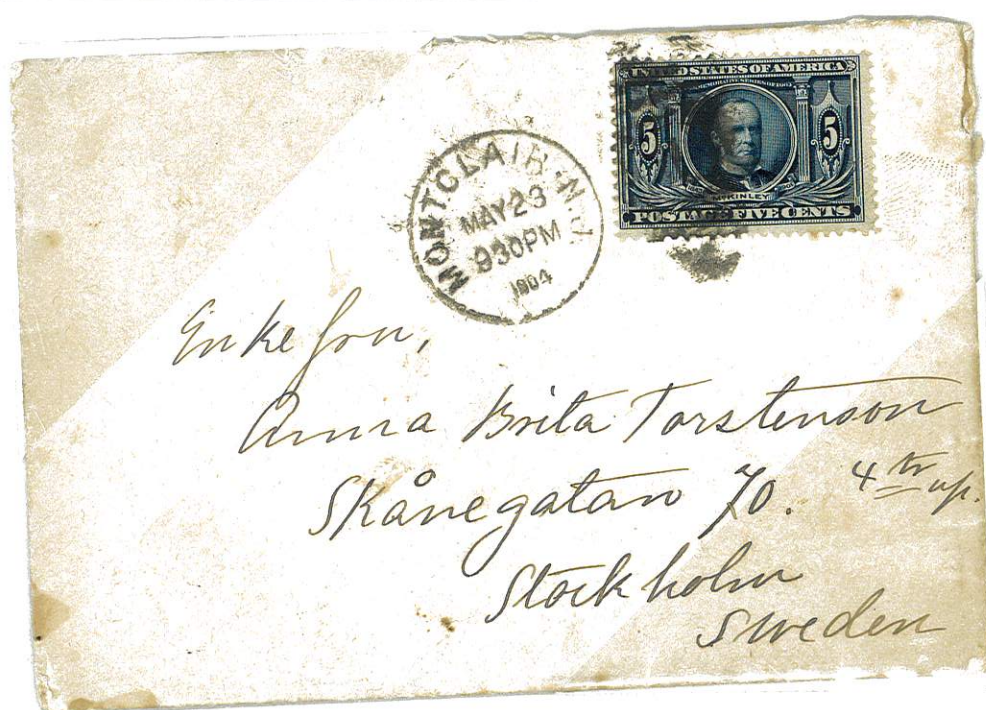 UNITED STATES OF AMERICA
COMMEMORATIVE SERIES OF 1904
5 5
McKINLEY
POSTAGE FIVE CENTS
MONTCLAIR, N.J.
MAY 23
930PM
1904
Enkefru,
Anna Brita Torstenson
Skånegatan 70. 4 tr up.
Stockholm
Sweden